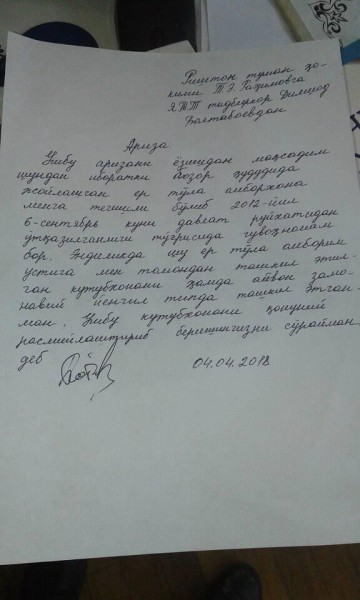 Риштон туман ҳо-
кими Т.Э. Рахимовга
ЯТТ тадбиркор Дилшод
Болтабоевдан
Ариза
Ушбу аризани ёзишдан мақсадим
шундан иборатки бозор ҳудудида
жойлашган ер тўла омборхона
менга тегишли бўлиб 2012-йил
6-сентябрь куни давлат руйхатидан
ўтқазилганлиги тўғрисида гувоҳномам
бор. Эндиликда шу ер тўла омборим
устига мен томондан ташкил этил-
ган кутубхонани ҳамда айвон замо-
навий йенгил типда ташкил этган-
ман. Ушбу кутубхонани қонуний
расмийлаштириб беришингизни сўрайман
деб
04.04.2018